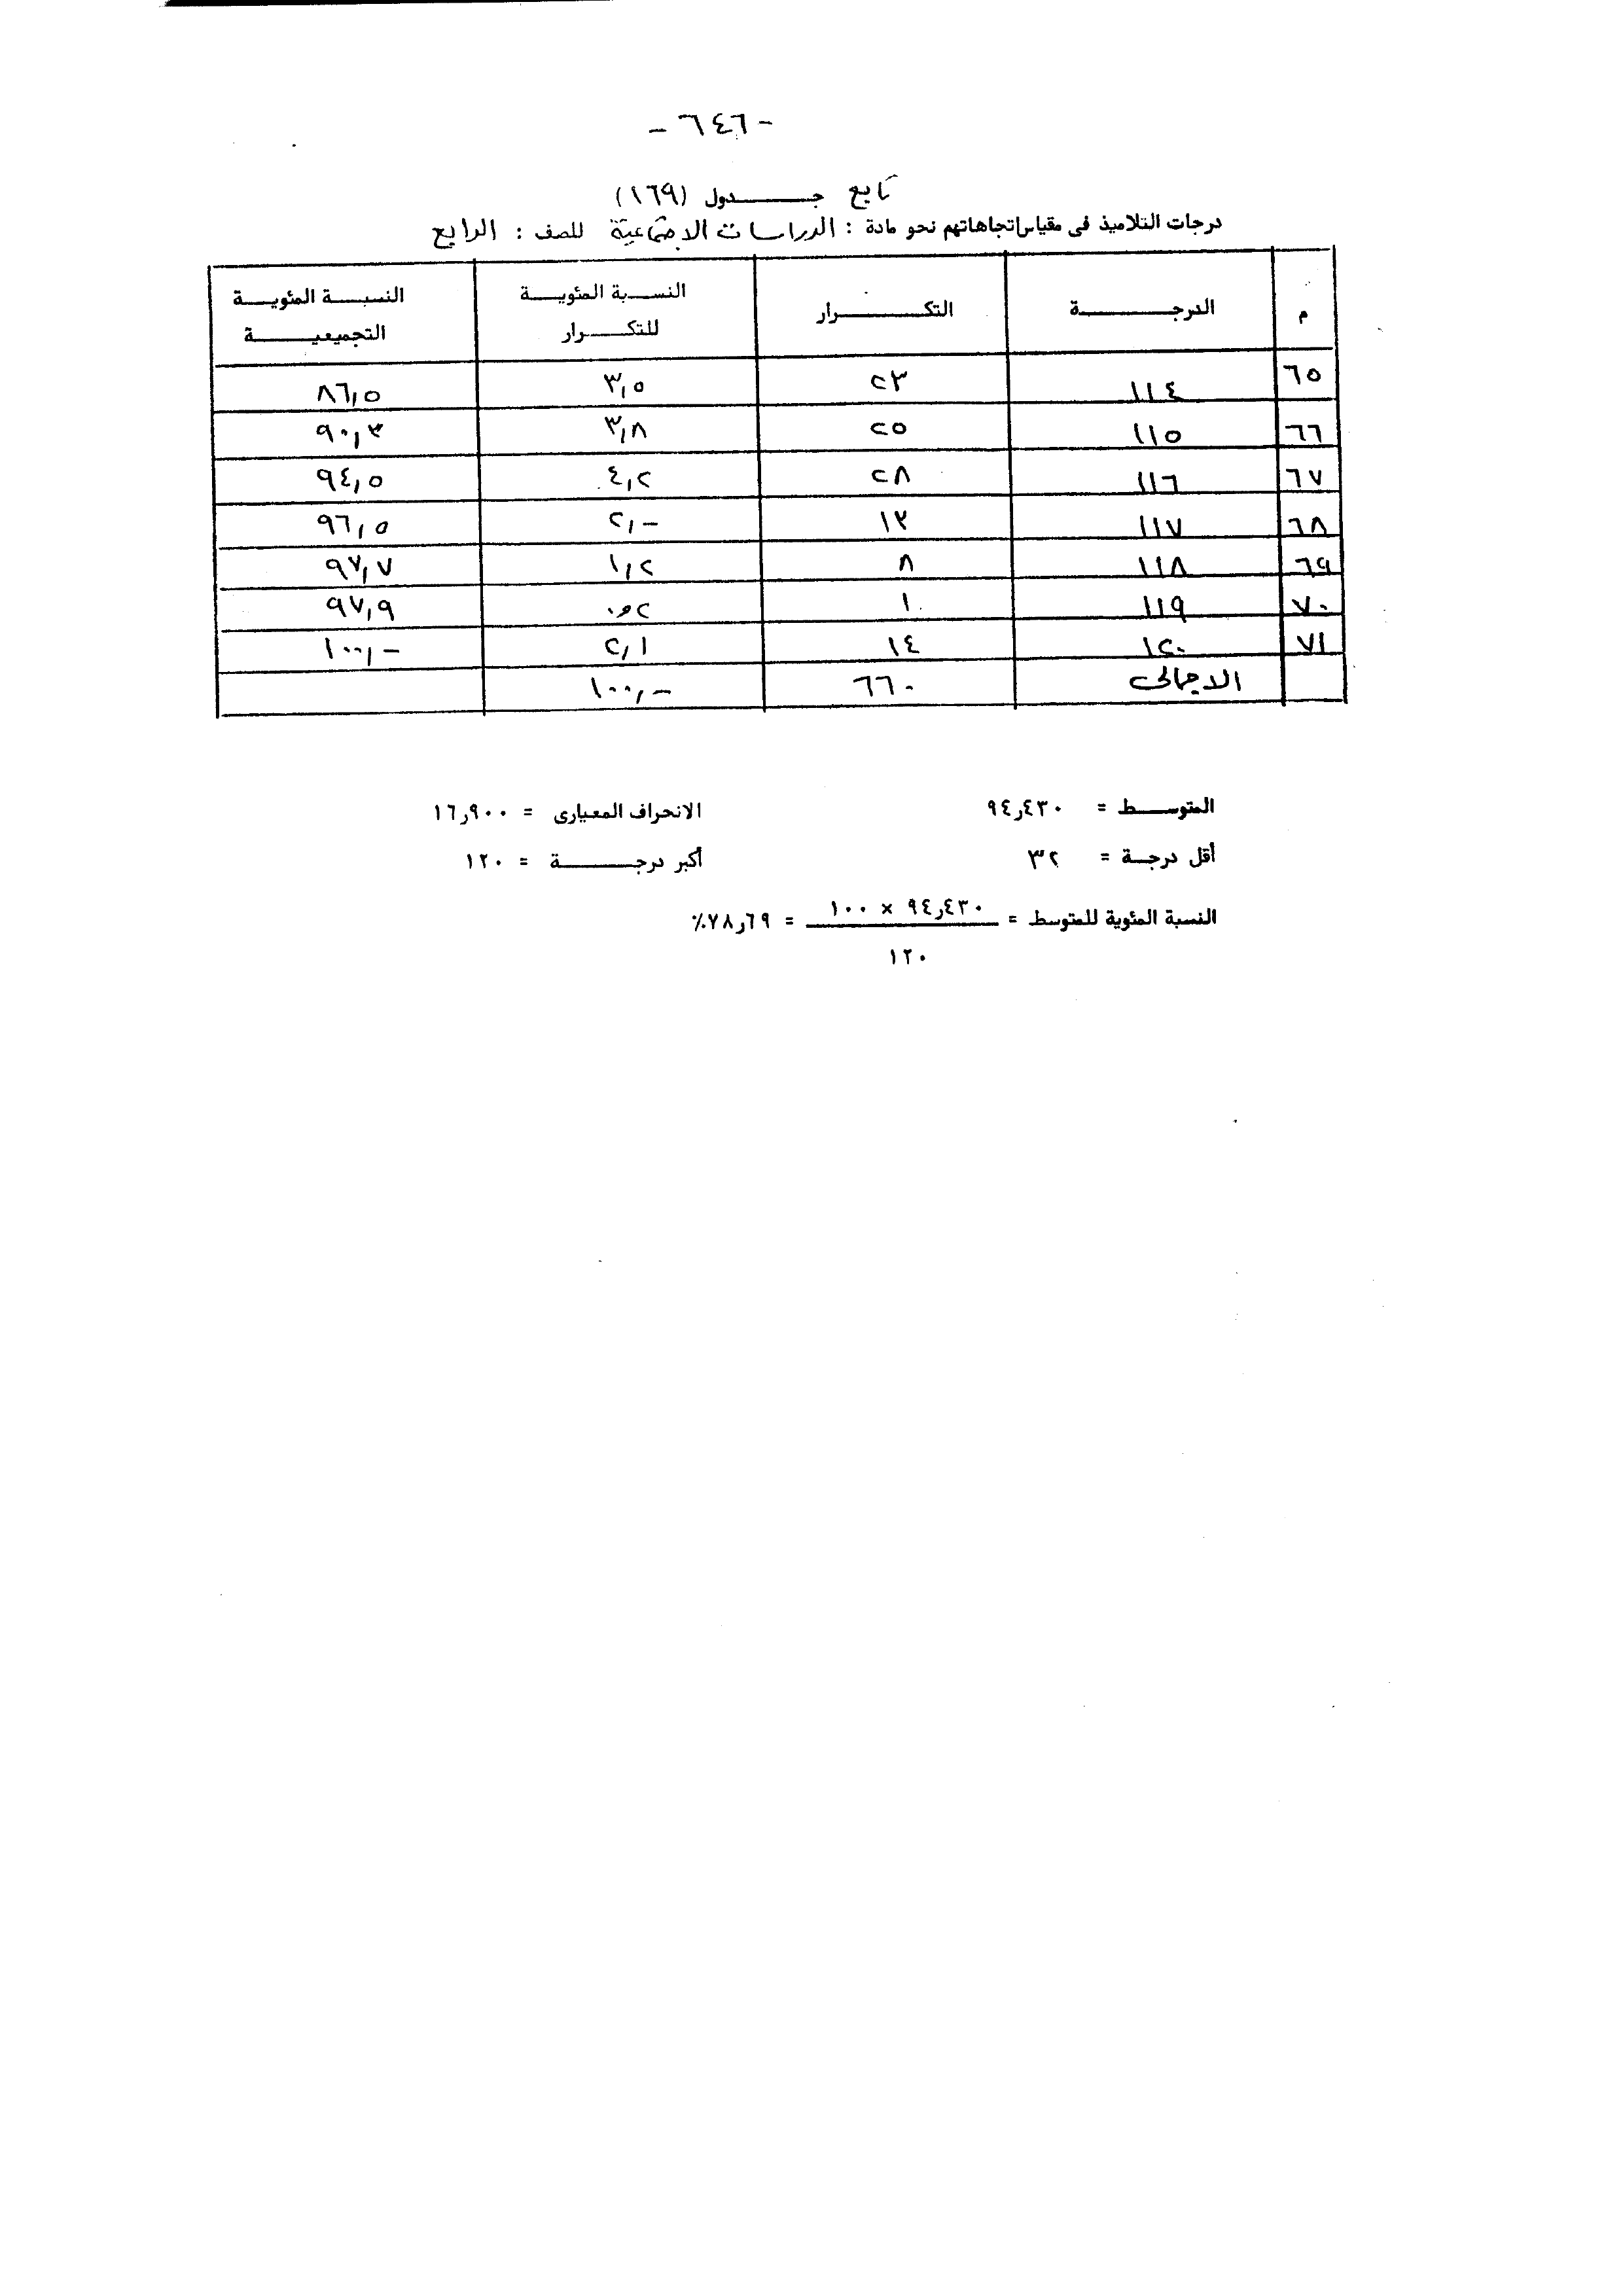 - ٦٤٦ -
تابع جدول (١٦٩)
درجات التلاميذ فى مقياس اتجاهاتهم نحو مادة : الدراسات الاجتماعية للصف : الرابع
م الدرجة التكرار النسبة المئوية للتكرار النسبة المئوية التجميعية
٦٥ ١١٤ ٢٣ ٣,٥ ٨٦,٥
٦٦ ١١٥ ٢٥ ٣,٨ ٩٠,٣
٦٧ ١١٦ ٢٨ ٤,٢ ٩٤,٥
٦٨ ١١٧ ١٣ ٢,- ٩٦,٥
٦٩ ١١٨ ٨ ١,٢ ٩٧,٧
٧٠ ١١٩ ١ ٠,٢ ٩٧,٩
٧١ ١٢٠ ١٤ ٢,١ ١٠٠,-
الاجمالى ٦٦٠ ١٠٠,-
المتوسط = ٩٤٫٤٣٠ الانحراف المعيارى = ١٦٫٩٠٠
أقل درجة = ٣٢ أكبر درجة = ١٢٠
النسبة المئوية للمتوسط = ٩٤٫٤٣٠ × ١٠٠ = ٧٨٫٦٩٪
١٢٠